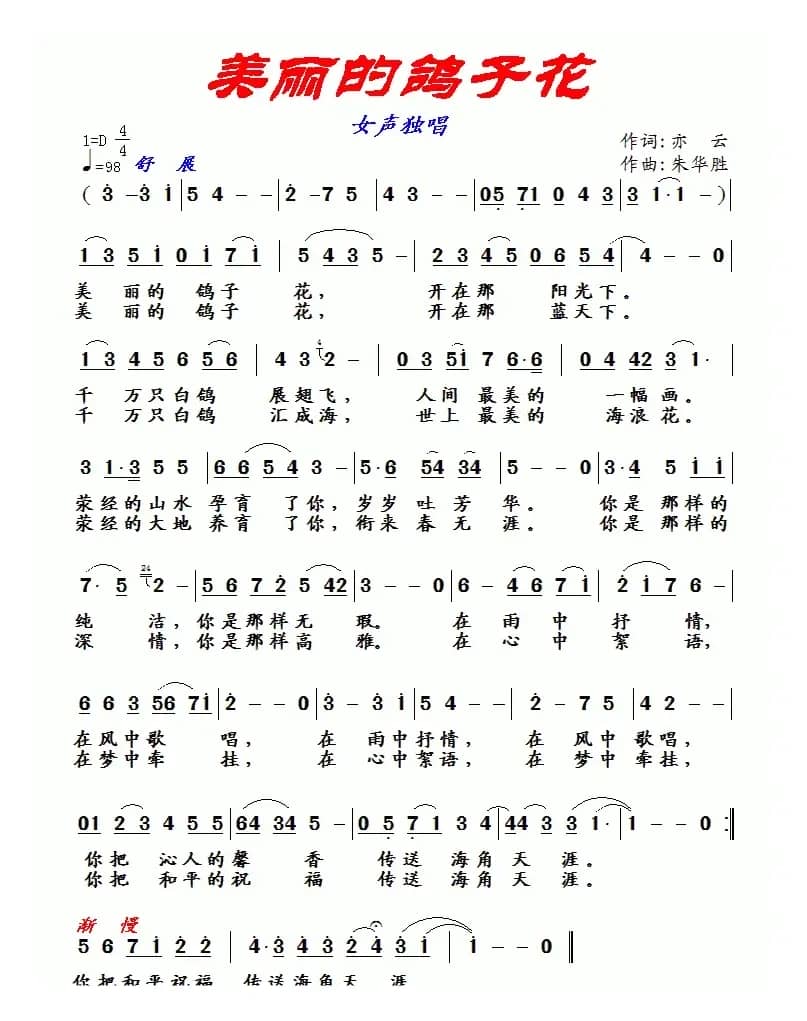 美丽的鸽子花
女声独唱
1=D 4/4
作词:亦 云
♩=98 舒 展
作曲:朱华胜
( 3 - 3 i | 5 4 - - | 2 - 7 5 | 4 3 - - | 05 71 0 4 3 | 3 1 · 1 - )
1 3 5 i 0 i 7 i | 5 4 3 5 - | 2 3 4 5 0 6 5 4 | 4 - - 0
美 丽的 鸽子 花, 开在那 阳光下。
美 丽的 鸽子 花, 开在那 蓝天下。
1 3 4 5 6 5 5 6 | 4 3 4 2 - | 0 3 5i 7 6·6 | 0 4 42 3 1·
千 万只白鸽 展翅飞, 人间 最美的 一幅画。
千 万只白鸽 汇成海, 世上 最美的 海浪花。
3 1·3 5 5 | 6 6 5 4 3 - | 5·6 54 34 | 5 - - 0 | 3·4 5 i i
荥经的山水 孕育 了你,岁岁 吐芳 华。 你是 那样的
荥经的大地 养育 了你,衔来 春无 涯。 你是 那样的
7· 5 24 2 - | 5 6 7 2 5 42 | 3 - - 0 | 6 - 4 6 7 i | 2 i 7 6 -
纯 洁,你是那样无 瑕。 在 雨中 抒 情,
深 情,你是那样高 雅。 在 心中 絮 语,
6 6 3 56 7i | 2 - - 0 | 3 - 3 i | 5 4 - - | 2 - 7 5 | 4 2 - -
在风中歌 唱, 在 雨中抒情, 在 风中 歌唱,
在梦中牵 挂, 在 心中絮语, 在 梦中 牵挂,
01 2 3 4 5 5 | 64 34 5 - | 0 5 7 1 3 4 | 44 3 3 1· | 1 - - 0 :||
你把 沁人的馨 香 传送 海角 天 涯。
你把 和平的祝 福 传送 海角 天 涯。
渐 慢
5 6 7 i 2 2 | 4·3 4 3 2 4 3 i | i - - 0 ||
你把和平祝福 传送海角天 涯